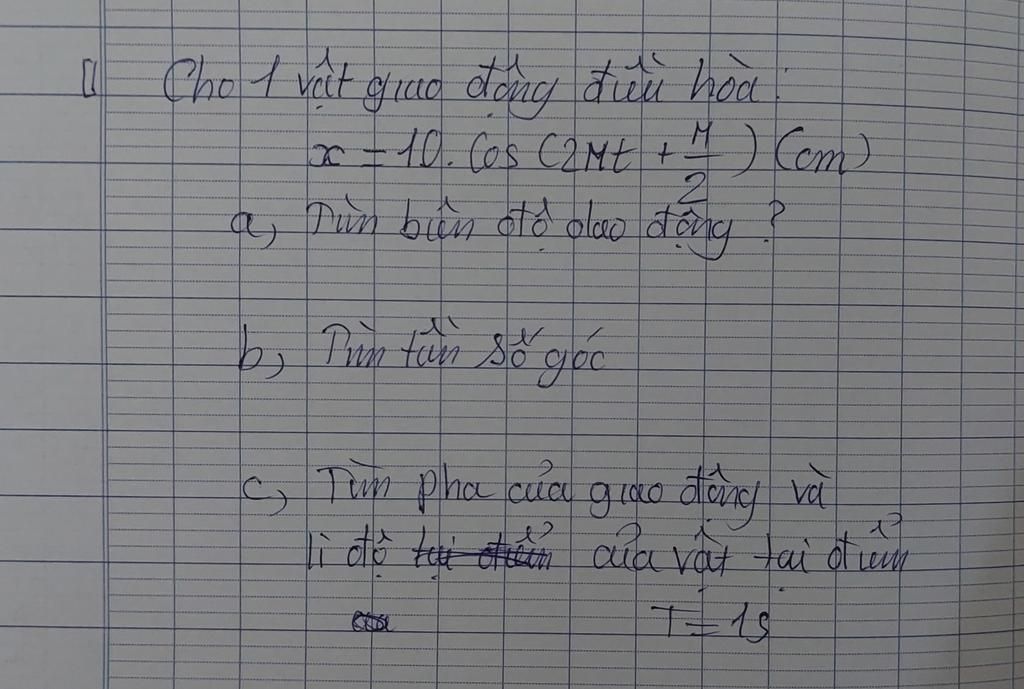 Cho 1 vật giao động điều hòa:
x = 10. Cos (2πt + π/2) (cm)
a, Tìm biên độ dao động ?
b, Tìm tần số góc
c, Tìm pha của giao động và
li độ của vật tại điểm
T = 1s